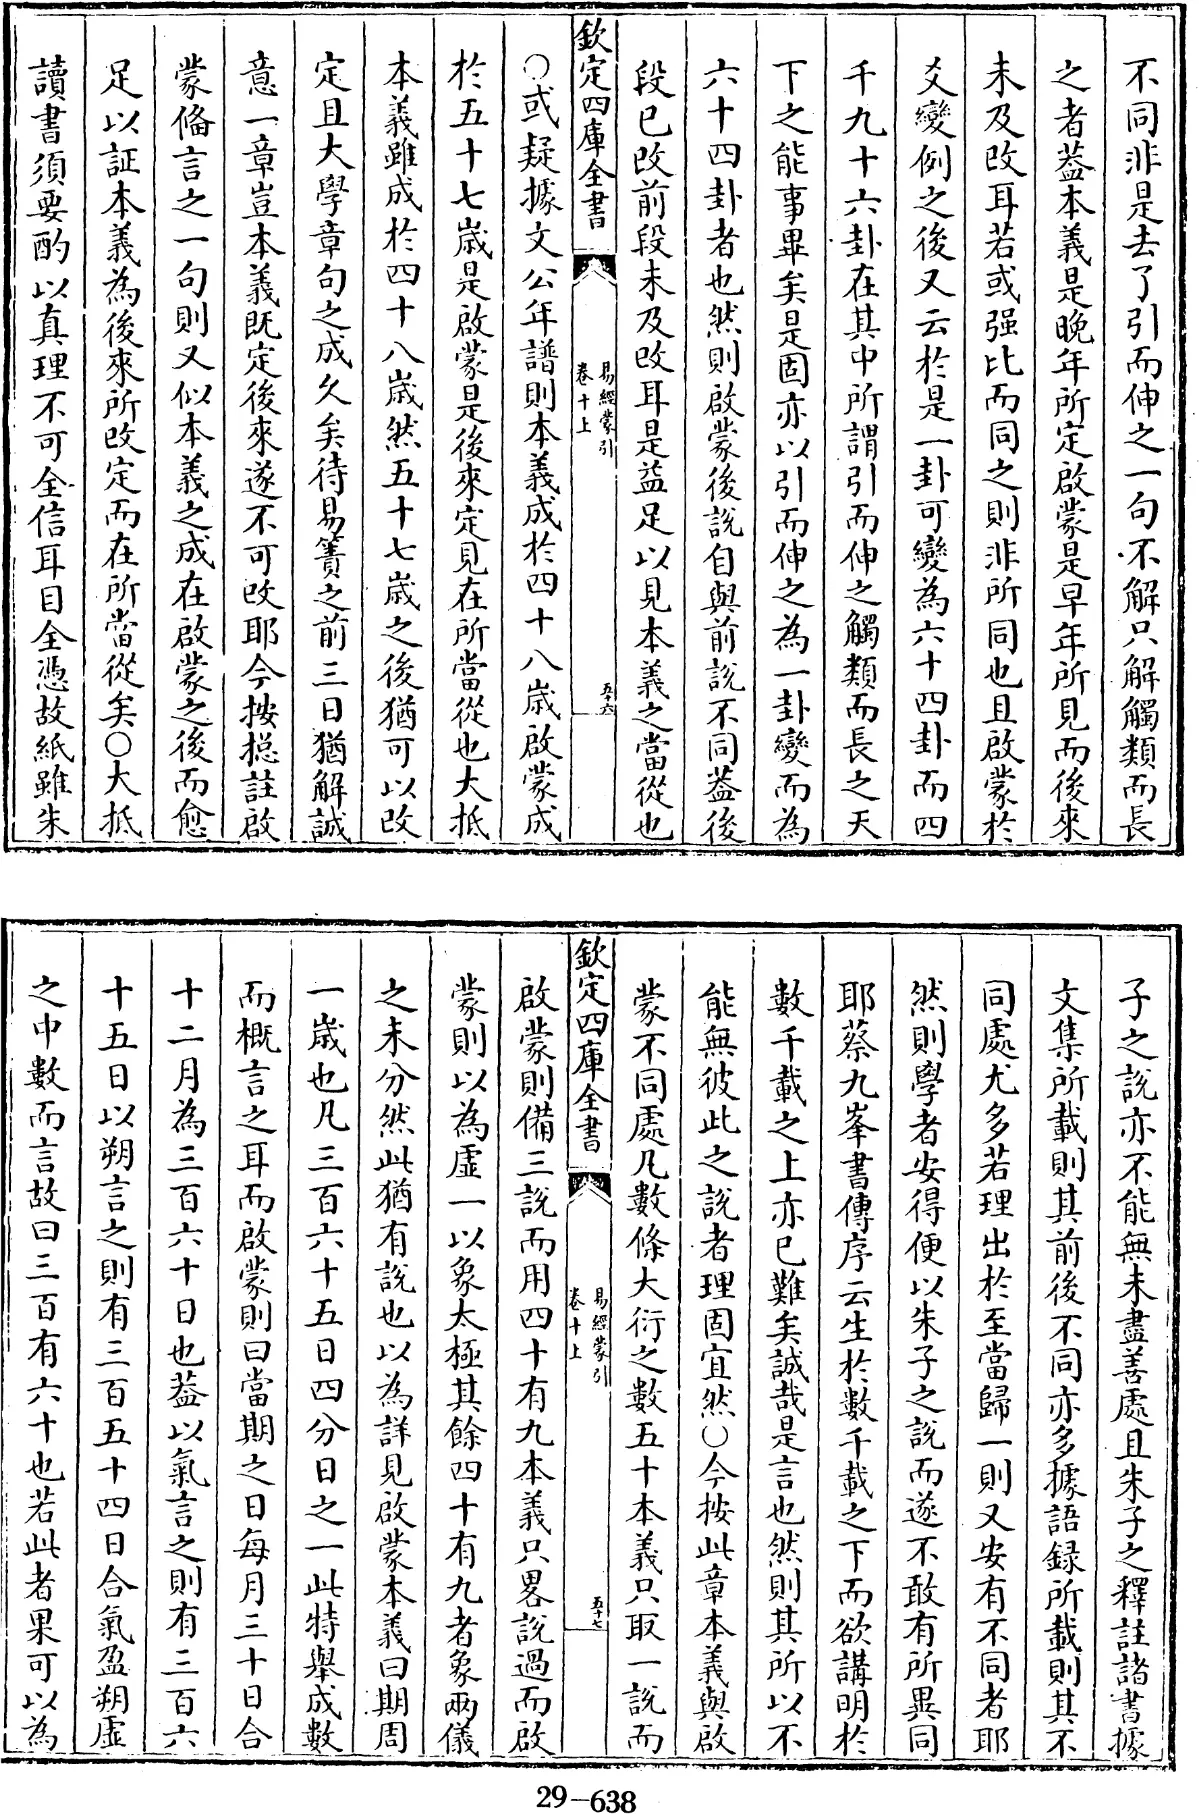 不同非是去了引而伸之一句不解只解觸類而長
之者葢本義是晚年所定啟蒙是早年所見而後來
未及改耳若或强比而同之則非所同也且啟蒙於
爻變例之後又云於是一卦可變為六十四卦而四
千九十六卦在其中所謂引而伸之觸類而長之天
下之能事畢矣是固亦以引而伸之為一卦變而為
六十四卦者也然則啟蒙後説自與前説不同葢後
段已改前段未及改耳是益足以見本義之當從也
欽定四庫全書
易經蒙引
卷十上
五十六
○或疑據文公年譜則本義成於四十八歲啟蒙成
於五十七歲是啟蒙是後來定見在所當從也大抵
本義雖成於四十八歲然五十七歲之後猶可以改
定且大學章句之成久矣待易簀之前三日猶解誠
意一章豈本義既定後來遂不可改耶今按總註啟
蒙偹言之一句則又似本義之成在啟蒙之後而愈
足以証本義為後來所改定而在所當從矣○大抵
讀書須要酌以真理不可全信耳目全憑故紙雖朱
子之説亦不能無未盡善處且朱子之釋註諸書據
文集所載則其前後不同亦多據語録所載則其不
同處尤多若理出於至當歸一則又安有不同者耶
然則學者安得便以朱子之説而遂不敢有所異同
耶蔡九峯書傳序云生於數千載之下而欲講明於
數千載之上亦已難矣誠哉是言也然則其所以不
能無彼此之説者理固宜然○今按此章本義與啟
蒙不同處凡數條大衍之數五十本義只取一説而
欽定四庫全書
易經蒙引
卷十上
五十七
啟蒙則備三説而用四十有九本義只畧説過而啟
蒙則以為虛一以象太極其餘四十有九者象兩儀
之未分然此猶有説也以為詳見啟蒙本義曰期周
一歲也凡三百六十五日四分日之一此特舉成數
而概言之耳而啟蒙則曰當期之日每月三十日合
十二月為三百六十日也葢以氣言之則有三百六
十五日以朔言之則有三百五十四日合氣盈朔虛
之中數而言故曰三百有六十也若此者果可以為
29-638